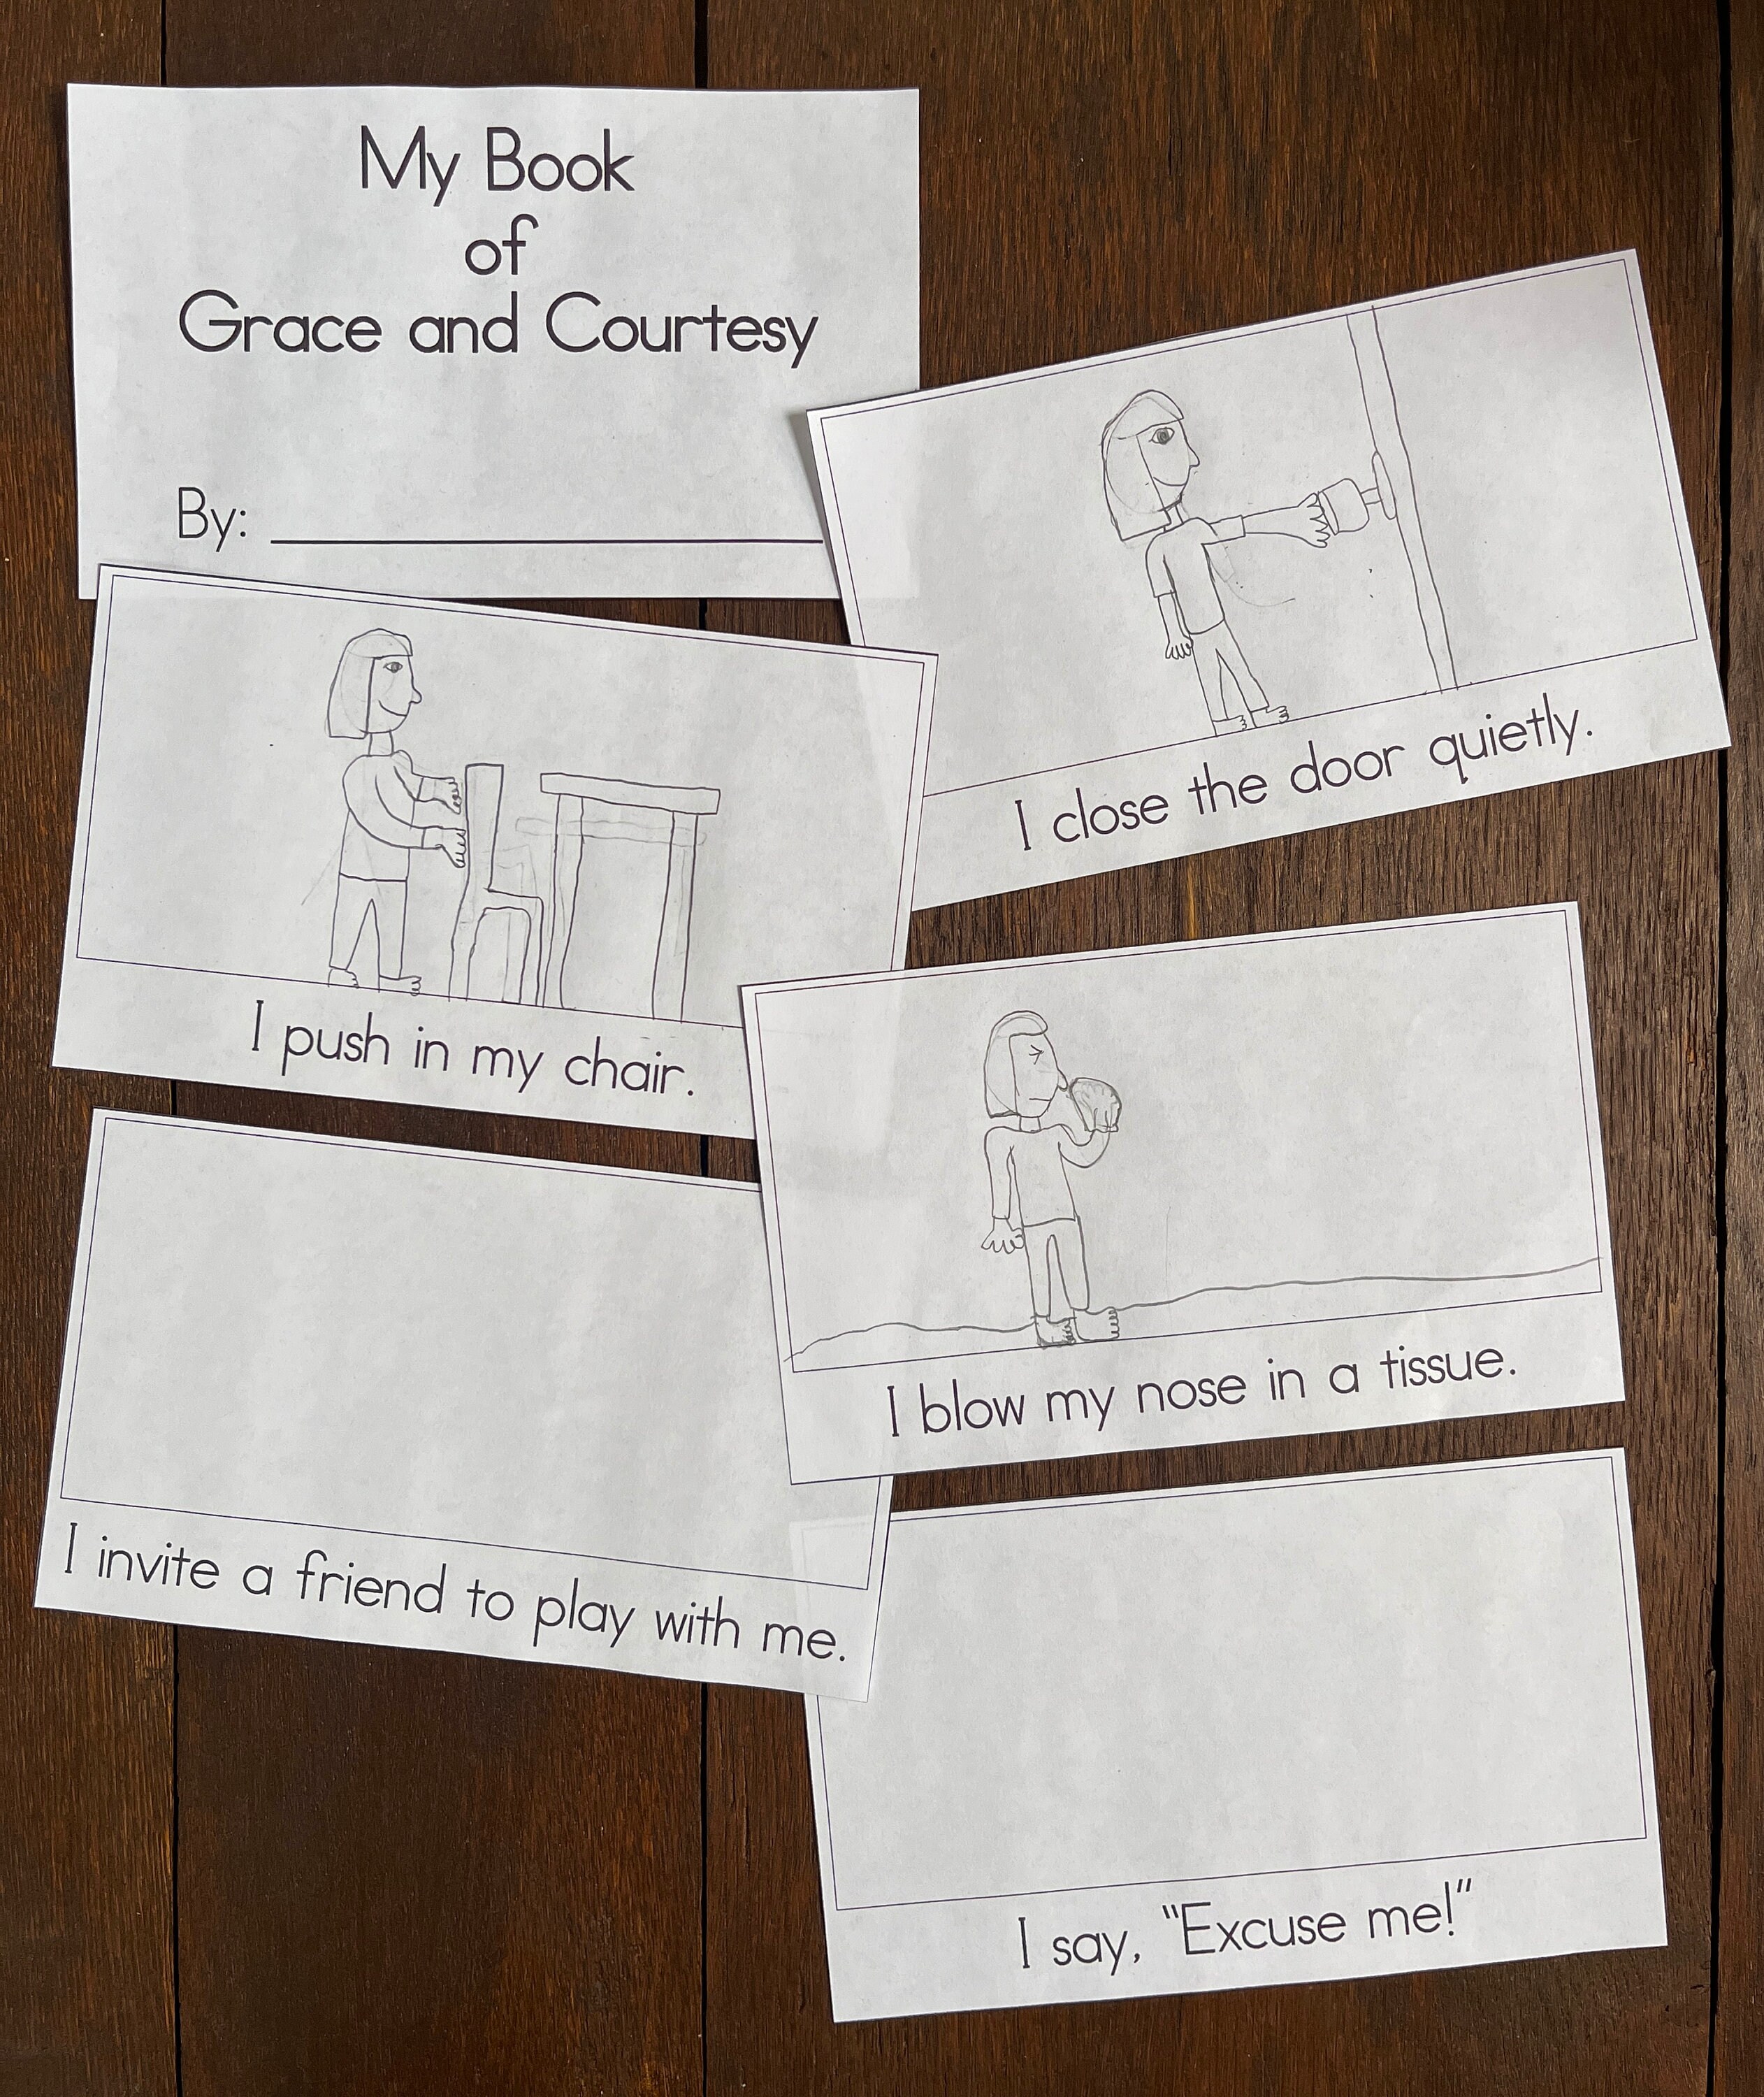 My Book
of
Grace and Courtesy
By:
I close the door quietly.
I push in my chair.
I blow my nose in a tissue.
I invite a friend to play with me.
I say, "Excuse me!"